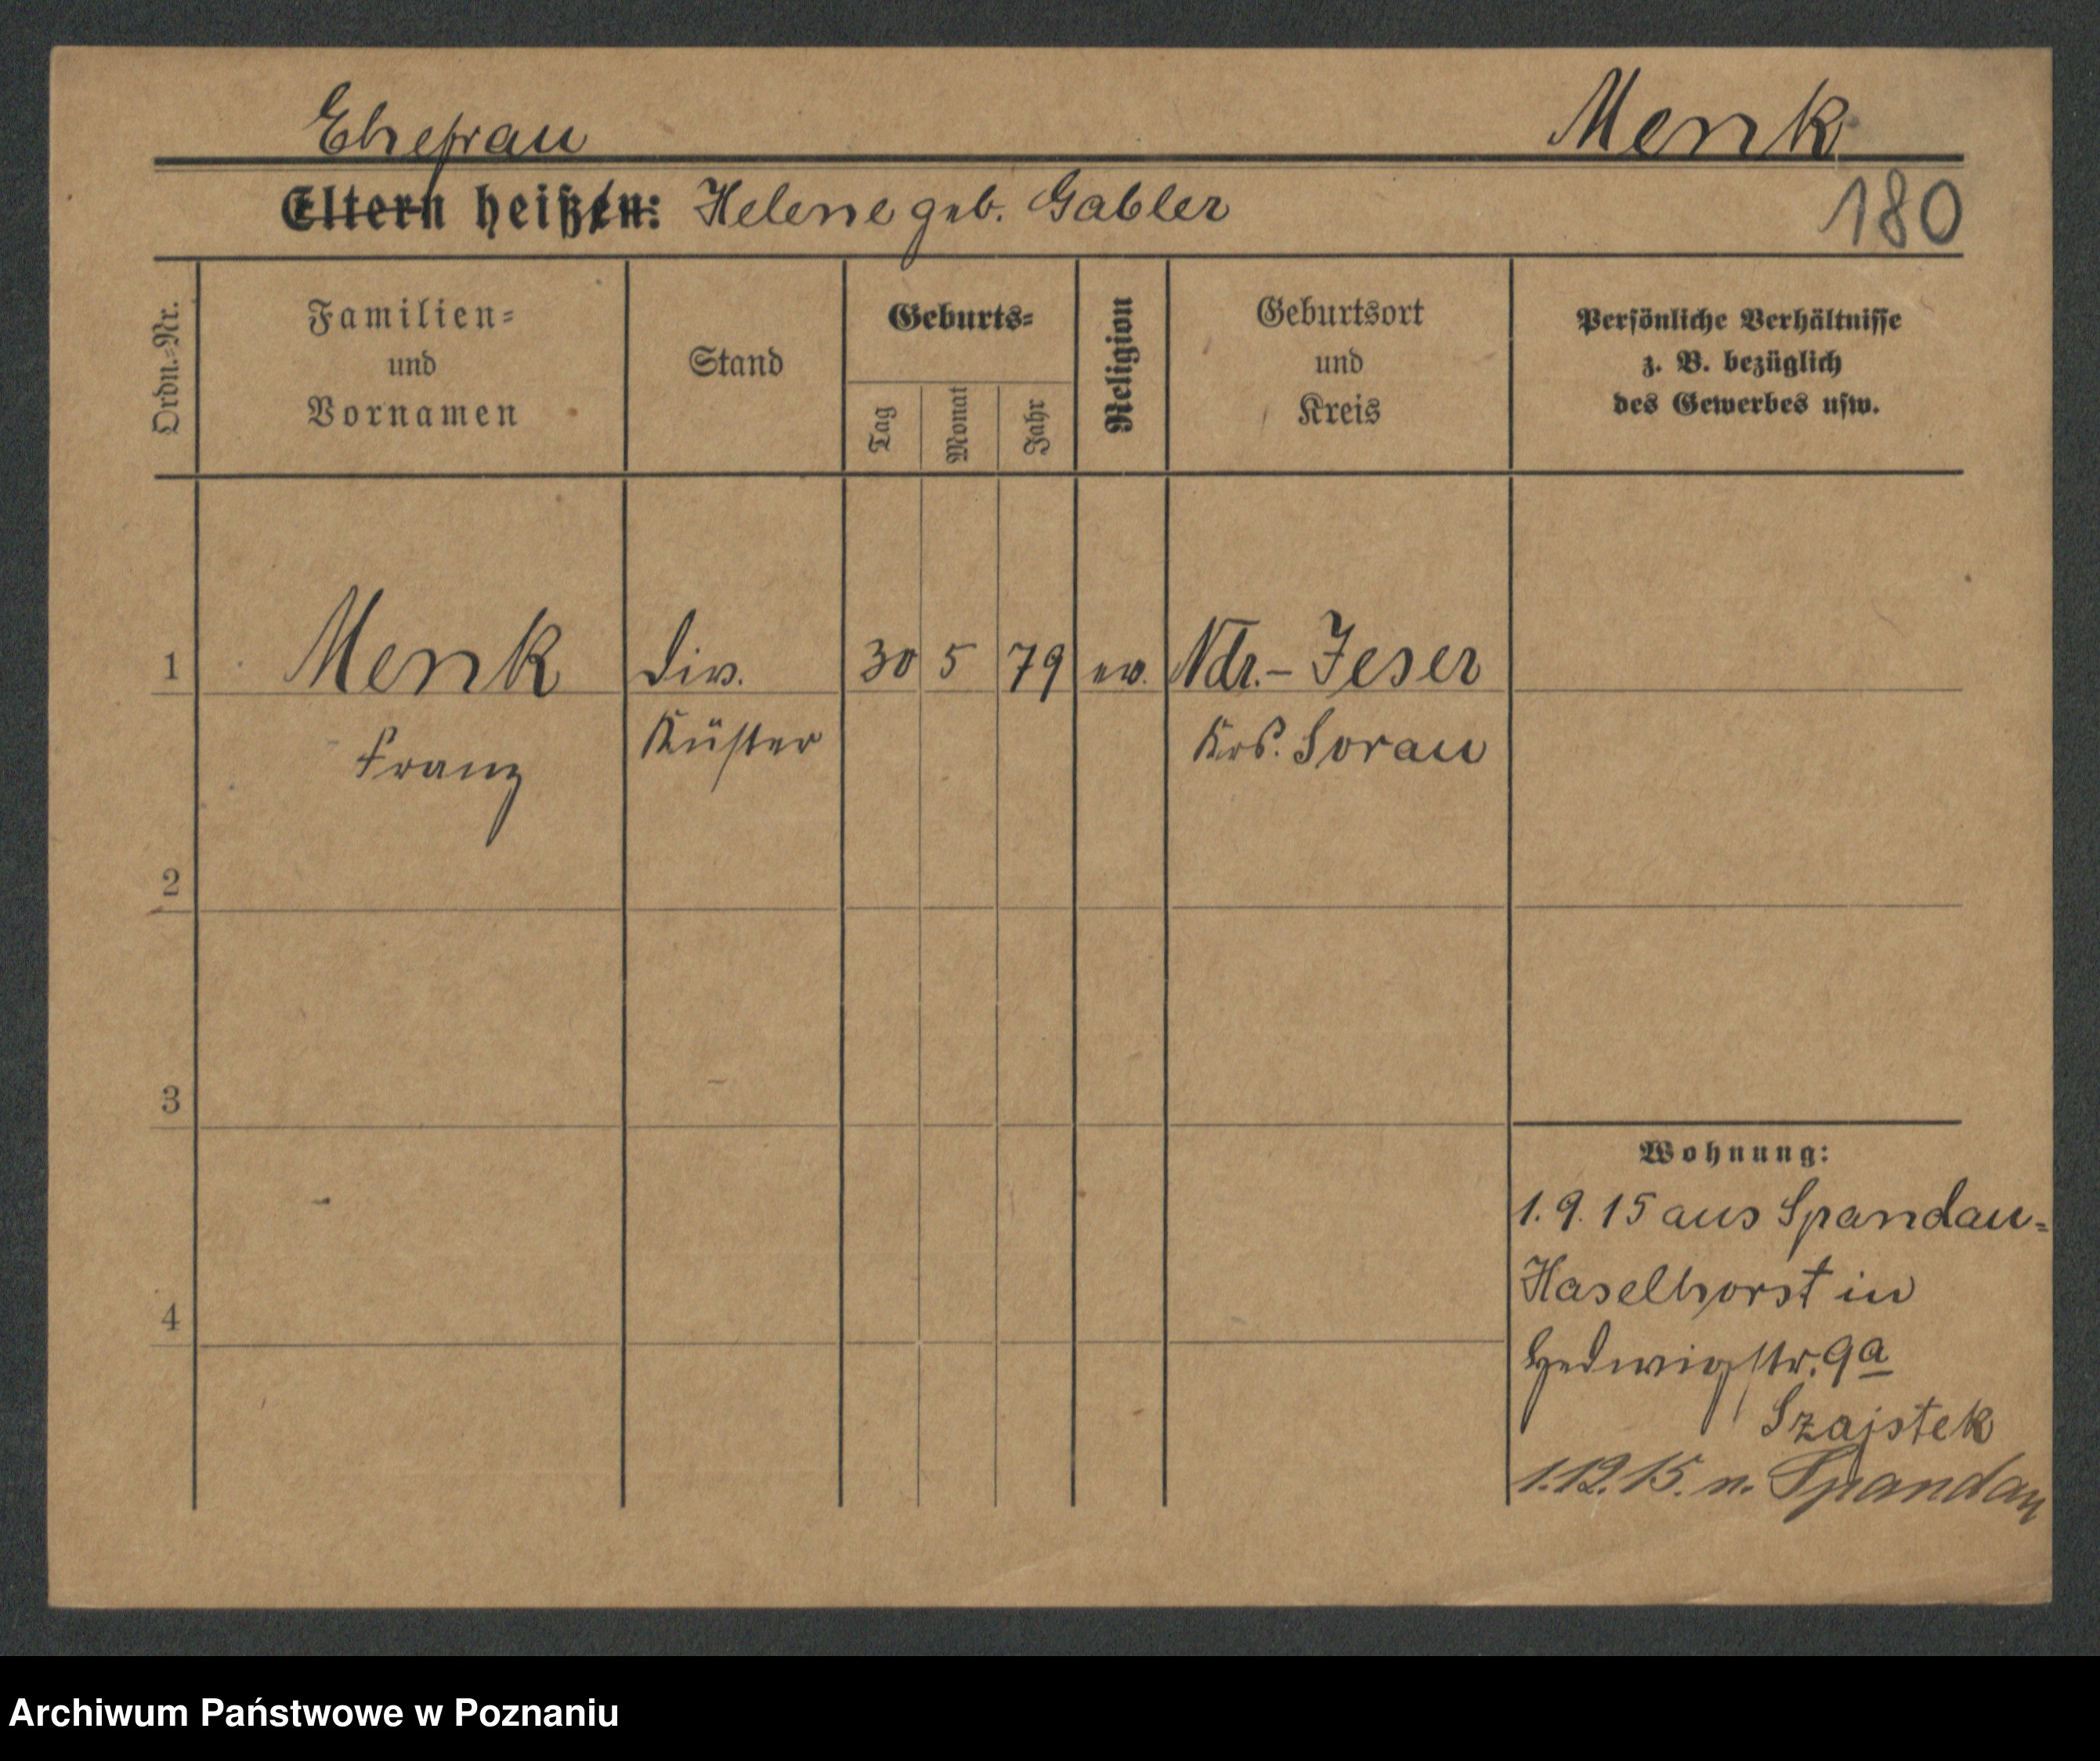 Ehefrau Menk
Eltern heißen: Helene geb. Gabler 180
Ordn.-Nr.
Familien-
und
Vornamen
Stand
Geburts-
Tag
Monat
Jahr
Religion
Geburtsort
und
Kreis
Persönliche Verhältnisse
z. B. bezüglich
des Gewerbes usw.
1 Menk Div. 30 5 79 ev. Ndr.- Jeser
Franz Küster Krs. Sorau
2
3
Wohnung:
1.9.15 aus Spandau-
Haselhorst in
4
Hedwigstr. 9a
Szajstek
1.12.15. n. Spandau
Archiwum Państwowe w Poznaniu